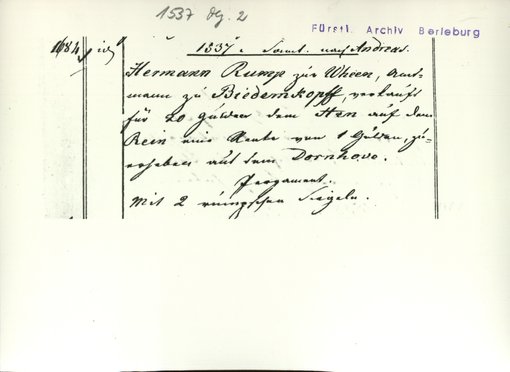 1537 Dz. 2
Fürstl. Archiv Berleburg
1684
1537. Sonnt. nach Andreas.
Hermann Rump zur Wheen, Amt-
mann zu Biedemkopff, verkauft
für 20 Gulden dem Hen auf dem
Rein eine Rente von 1 Gulden, zu
erheben aus dem Dornhove.
Pergament.
Mit 2 Siegeln.